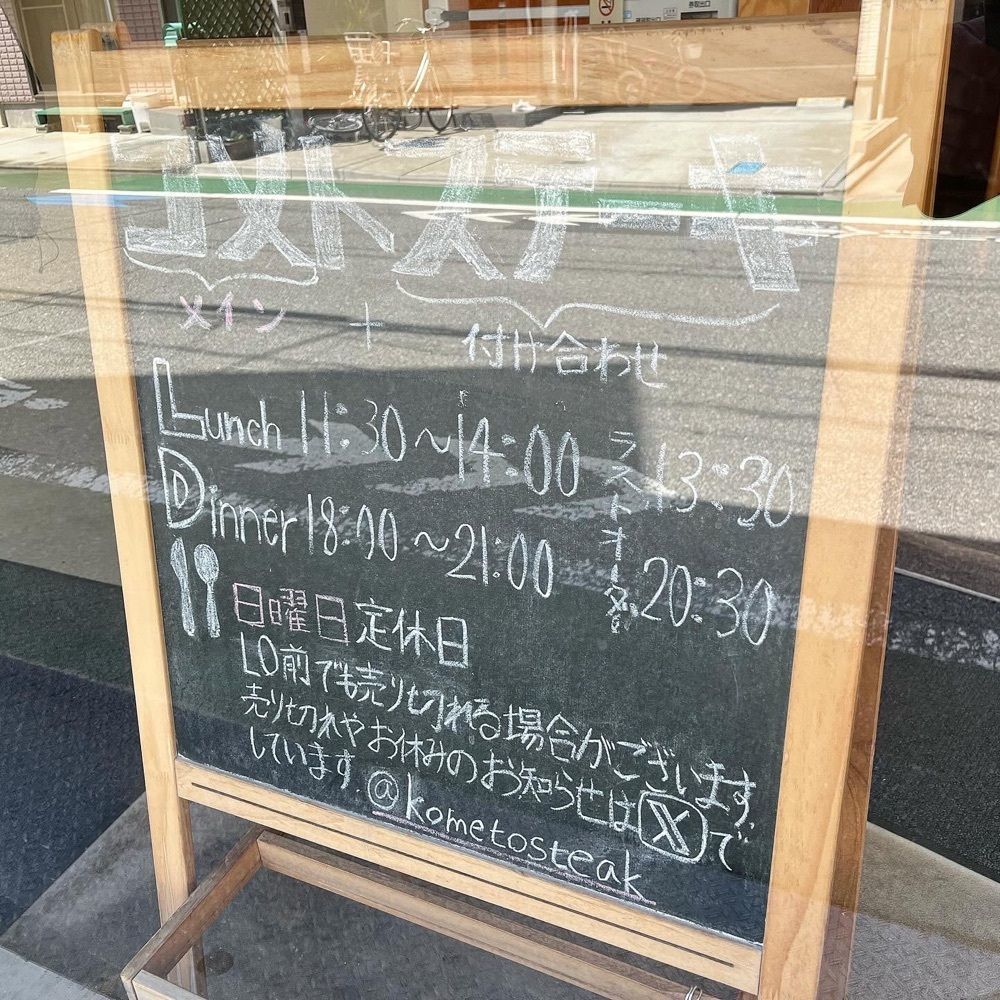 コメトステーキ
メイン + 付け合わせ
Lunch 11:30～14:00 ラストオーダー 13:30
Dinner 18:00～21:00 20:30
日曜日定休日
LO前でも売り切れる場合がございます。
売り切れやお休みのお知らせはXで
しています。@kometosteak